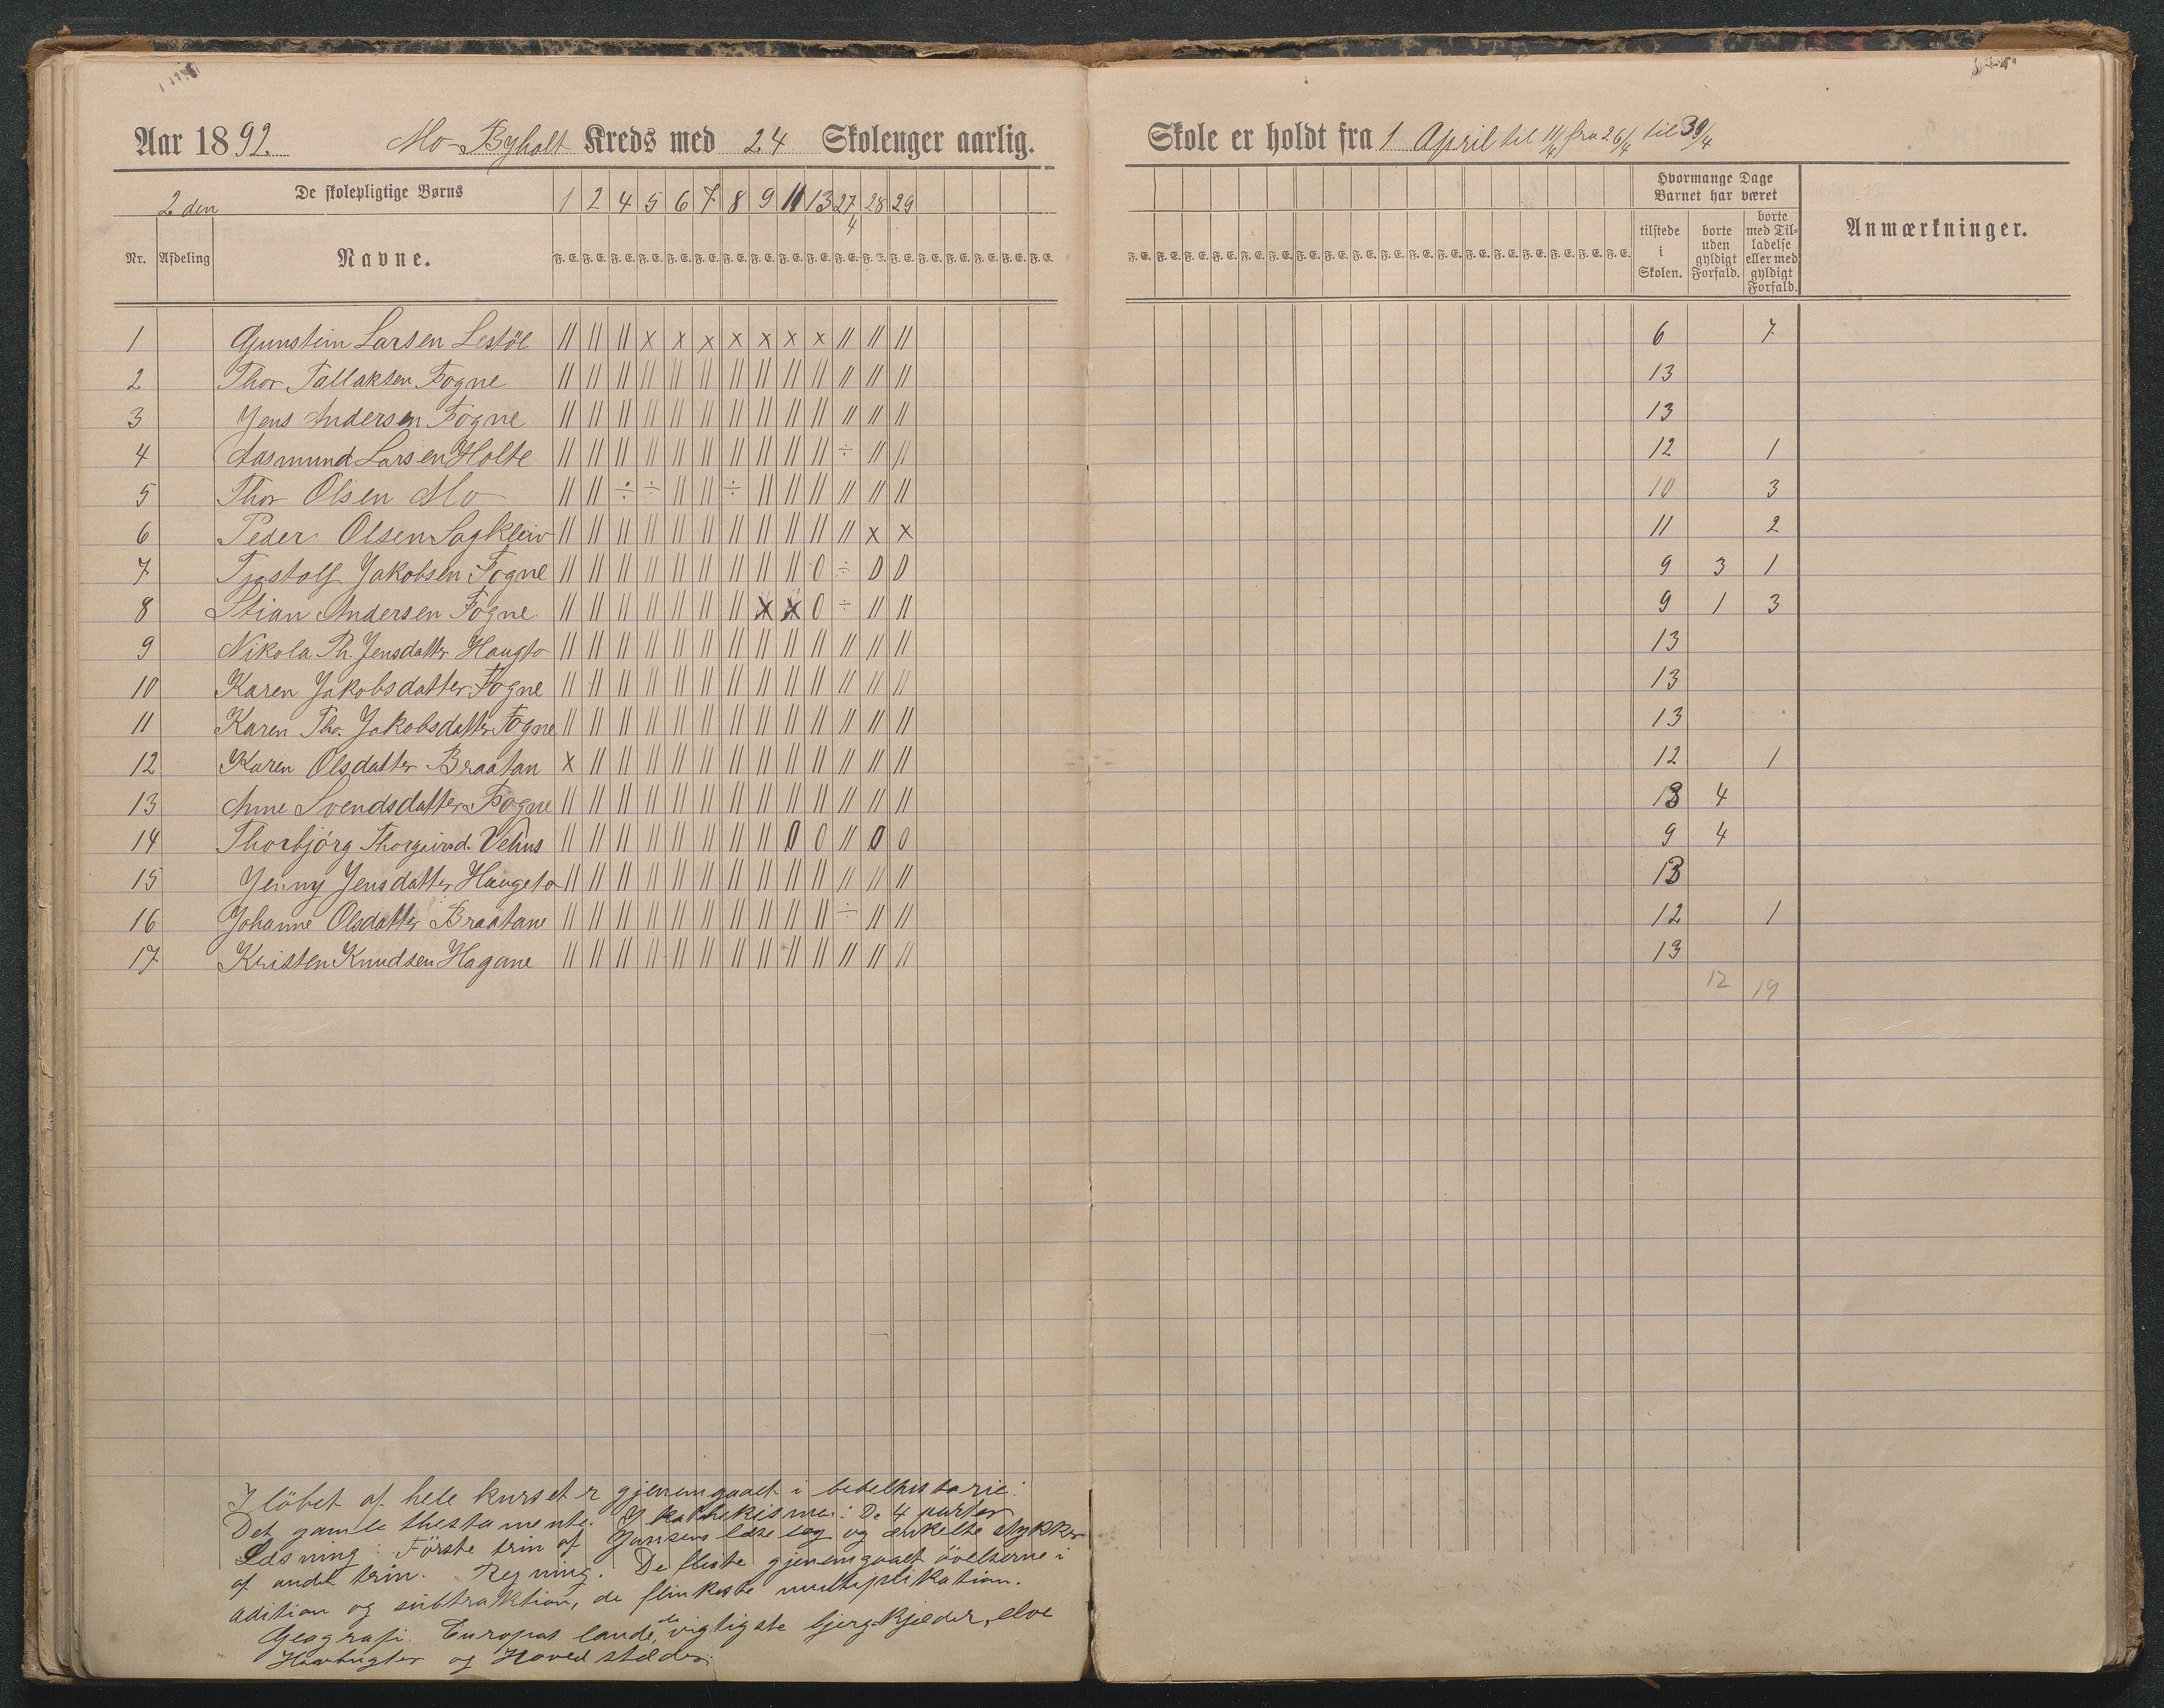 Aar 1892. Mo-Byholt Kreds med 24 Skolenger aarlig.
Skole er holdt fra 1 April til 11/4 fra 26/4 til 30/4
2 den De skolepligtige Børns 1 2 4 5 6 7 8 9 11 13 27/4 28 29
Hvormange Dage Barnet har været
Nr. Afdeling Navne. F. E. F. E. F. E. F. E. F. E. F. E. F. E. F. E. F. E. F. E. F. E. F. E. F. E. F. E. F. E. F. E. F. E. F. E.
F. E. F. E. F. E. F. E. F. E. F. E. F. E. F. E. F. E. F. E. F. E. F. E. F. E. F. E. F. E. F. E. F. E. F. E.
tilstede i Skolen. borte uden gyldigt Forfald. borte med Tilladelse eller med gyldigt Forfald. Anmærkninger.
1 Gunstein Larsen Lestöl || || || x x x x x x x || || || 6 7
2 Thor Tallaksen Fogne || || || || || || || || || || || || || 13
3 Jens Andersen Fogne || || || || || || || || || || || || || 13
4 Aasmund Larsen Holte || || || || || || || || || || ÷ || || 12 1
5 Thor Olsen Mo || || ÷ ÷ || || ÷ || || || || || || 10 3
6 Peder Olsen Sagkleiv || || || || || || || || || || || x x 11 2
7 Tjostolf Jakobsen Fogne || || || || || || || || || 0 ÷ 0 0 9 3 1
8 Stian Andersen Fogne || || || || || || || x x 0 ÷ || || 9 1 3
9 Nikola Th. Jensdatter Haugto || || || || || || || || || || || || || 13
10 Karen Jakobsdatter Fogne || || || || || || || || || || || || || 13
11 Karen Tho. Jakobsdatter Fogne || || || || || || || || || || || || || 13
12 Karen Olsdatter Braatan x || || || || || || || || || || || || 12 1
13 Anne Svendsdatter Fogne || || || || || || || || || || || || || 13 4
14 Thorbjörg Thorgeirsd. Vehus || || || || || || || || 0 0 || 0 0 9 4
15 Jenny Jensdatter Haugeto || || || || || || || || || || || || || 13
16 Johanne Olsdatter Braatane || || || || || || || || || || ÷ || || 12 1
17 Kristen Knudsen Hagane || || || || || || || || || || || || || 13
12 19
I löbet af hele kurset er gjenemgaaet i bibelhistorie:
Det gamle thestamente. I kathekisme: De 4 parter
Læsning: Förste trin af Jensens læsebog og enkelte stykker
af andet trin. Regning. De fleste gjenemgaaet övelserne i
adition og subtraktion, de flinkeste multiplikation.
Geografi. Europas lande, de vigtigste bjergkjæder, elve
Havbugter og Hovedstæder.